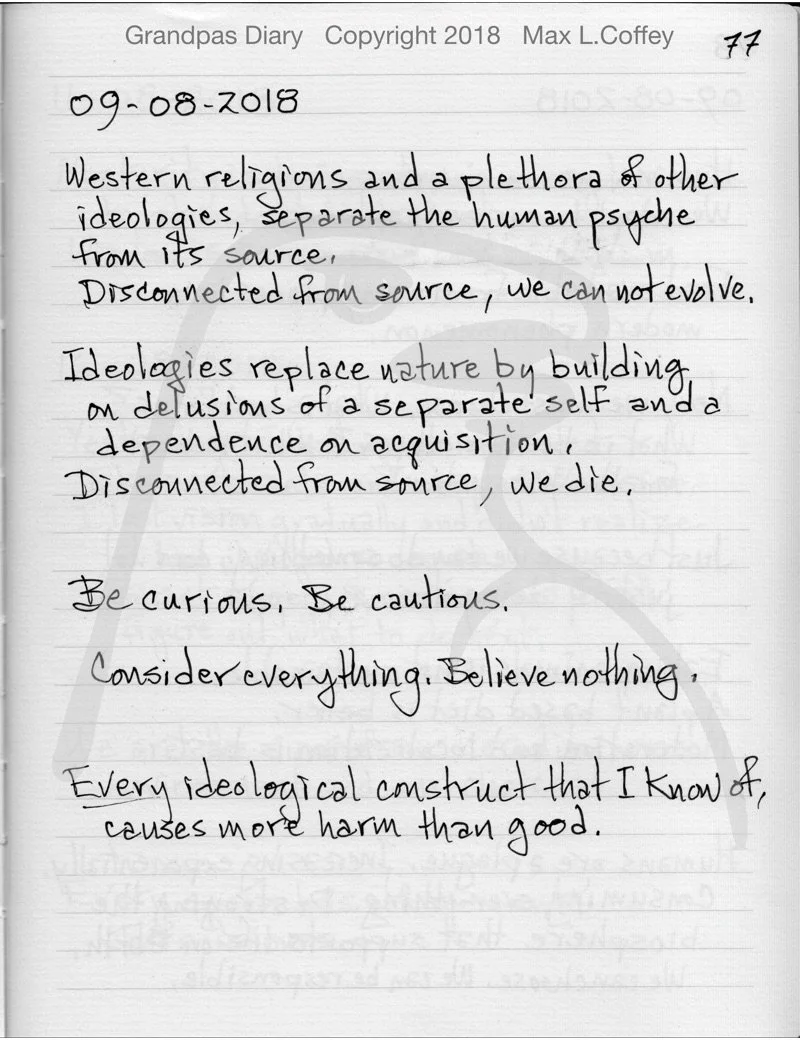 Grandpas Diary Copyright 2018 Max L.Coffey
77
09-08-2018
Western religions and a plethora of other
ideologies, separate the human psyche
from its source.
Disconnected from source, we can not evolve.
Ideologies replace nature by building
on delusions of a separate self and a
dependence on acquisition.
Disconnected from source, we die.
Be curious. Be cautious.
Consider everything. Believe nothing.
Every ideological construct that I know of,
causes more harm than good.